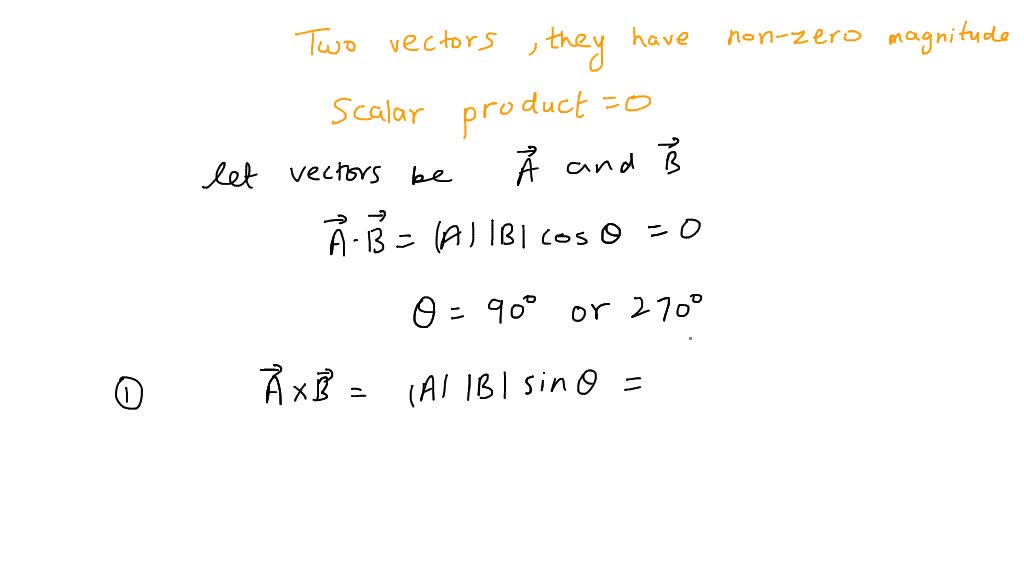 Two vectors, they have non-zero magnitude
Scalar product = 0
let vectors be A⃗ and B⃗
A⃗ · B⃗ = |A| |B| cos θ = 0
θ = 90° or 270°
① A⃗ × B⃗ = |A| |B| sin θ =